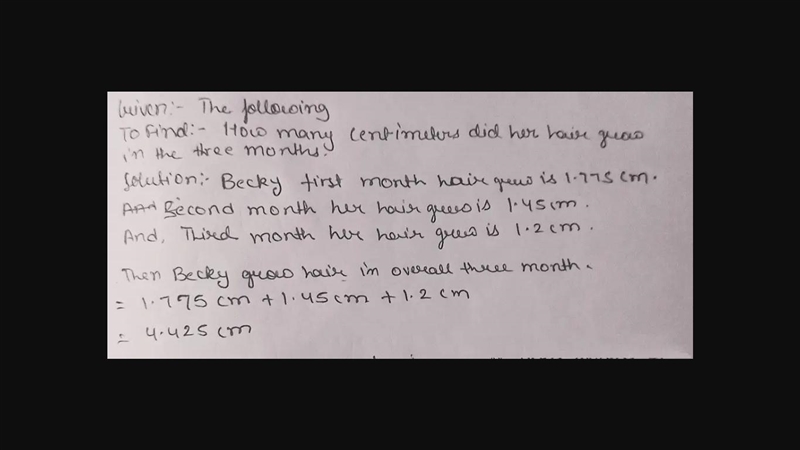 Given:- The following
To Find:- How many centimeters did her hair grow
in the three months?
Solution:- Becky first month hair grew is 1.775 cm.
And Second month her hair grew is 1.45 cm.
And, Third month her hair grew is 1.2 cm.
Then Becky grow hair in overall three month.
= 1.775 cm + 1.45 cm + 1.2 cm
= 4.425 cm